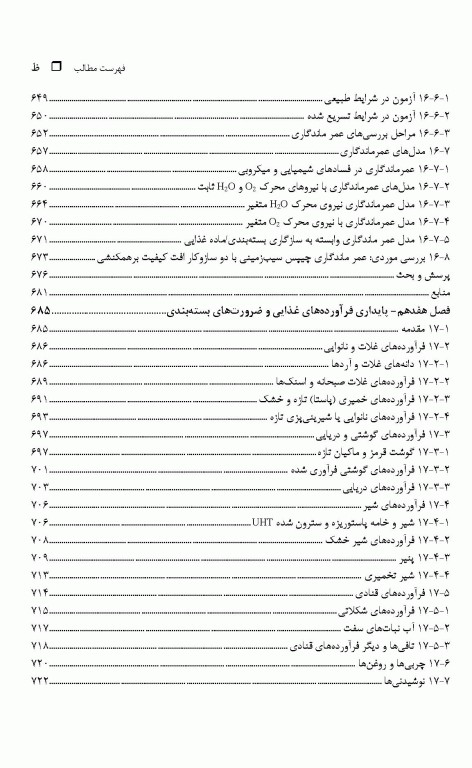 فهرست مطالب ❐ ظ
۱۶-۶-۱ آزمون در شرایط طبیعی ۶۴۹
۱۶-۶-۲ آزمون در شرایط تسریع شده ۶۵۰
۱۶-۶-۳ مراحل بررسی‌های عمر ماندگاری ۶۵۲
۱۶-۷ مدل‌های عمرماندگاری ۶۵۷
۱۶-۷-۱ عمرماندگاری در فسادهای شیمیایی و میکروبی ۶۵۸
۱۶-۷-۲ مدل‌های عمرماندگاری با نیروهای محرک O₂ و H₂O ثابت ۶۶۰
۱۶-۷-۳ مدل عمرماندگاری نیروی محرک H₂O متغیر ۶۶۴
۱۶-۷-۴ مدل عمرماندگاری با نیروی محرک O₂ متغیر ۶۷۰
۱۶-۷-۵ مدل عمر ماندگاری وابسته به سازگاری بسته‌بندی/ماده غذایی ۶۷۱
۱۶-۸ بررسی موردی: عمر ماندگاری چیپس سیب‌زمینی با دو سازوکار افت کیفیت برهمکنشی ۶۷۳
پرسش و بحث ۶۷۶
منابع ۶۸۱
فصل هفدهم - پایداری فرآورده‌های غذایی و ضرورت‌های بسته‌بندی ۶۸۵
۱۷-۱ مقدمه ۶۸۵
۱۷-۲ فرآورده‌های غلات و نانوایی ۶۸۶
۱۷-۲-۱ دانه‌های غلات و آردها ۶۸۶
۱۷-۲-۲ فرآورده‌های غلات صبحانه و اسنک‌ها ۶۸۹
۱۷-۲-۳ فرآورده‌های خمیری (پاستا) تازه و خشک ۶۹۱
۱۷-۲-۴ فرآورده‌های نانوایی یا شیرینی‌پزی تازه ۶۹۳
۱۷-۳ فرآورده‌های گوشتی و دریایی ۶۹۷
۱۷-۳-۱ گوشت قرمز و ماکیان تازه ۶۹۷
۱۷-۳-۲ فرآورده‌های گوشتی فرآوری شده ۷۰۱
۱۷-۳-۳ فرآورده‌های دریایی ۷۰۳
۱۷-۴ فرآورده‌های شیر ۷۰۶
۱۷-۴-۱ شیر و خامه پاستوریزه و سترون شده UHT ۷۰۶
۱۷-۴-۲ فرآورده‌های شیر خشک ۷۰۸
۱۷-۴-۳ پنیر ۷۰۹
۱۷-۴-۴ شیر تخمیری ۷۱۳
۱۷-۵ فرآورده‌های قنادی ۷۱۴
۱۷-۵-۱ فرآورده‌های شکلاتی ۷۱۵
۱۷-۵-۲ آب نبات‌های سفت ۷۱۷
۱۷-۵-۳ تافی‌ها و دیگر فرآورده‌های قنادی ۷۱۸
۱۷-۶ چربی‌ها و روغن‌ها ۷۲۰
۱۷-۷ نوشیدنی‌ها ۷۲۲